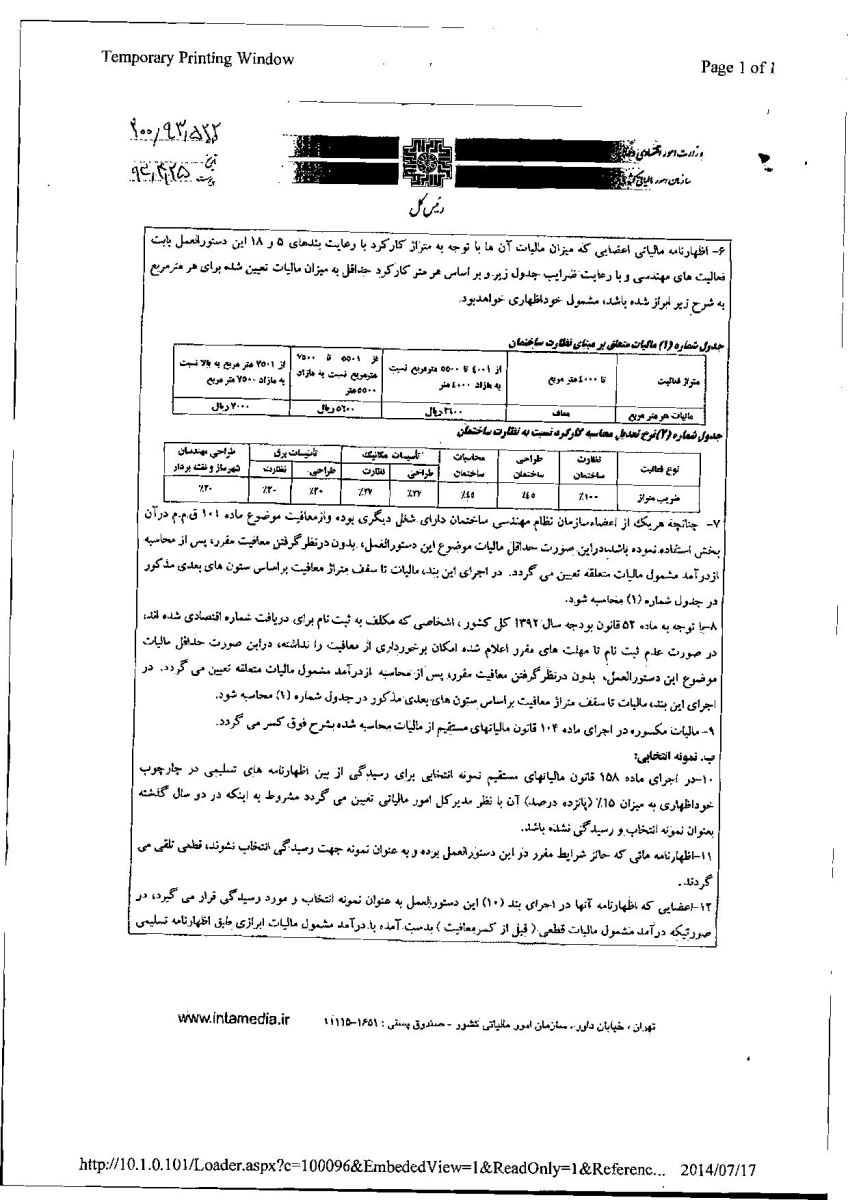 Temporary Printing Window
Page 1 of 1
۲۰۰/۹۳/۵۲۲
تاریخ
۹۳/۴/۲۵
پیوست
وزارت امور اقتصادی و دارایی
سازمان امور مالیاتی کشور
رئیس کل
۶- اظهارنامه مالیاتی اعضایی که میزان مالیات آن ها با توجه به متراژ کارکرد با رعایت بندهای ۵ و ۱۸ این دستورالعمل بابت
فعالیت های مهندسی و با رعایت ضرایب جدول زیر و بر اساس هر متر کارکرد حداقل به میزان مالیات تعیین شده برای هر مترمربع
به شرح زیر ابراز شده باشد، مشمول خوداظهاری خواهدبود.
جدول شماره (۱) مالیات متعلق بر مبنای نظارت ساختمان
متراژ فعالیت
تا ۴۰۰۰ متر مربع
از ۴۰۰۱ تا ۵۵۰۰ مترمربع نسبت به مازاد ۴۰۰۰ متر
از ۵۵۰۱ تا ۷۵۰۰ مترمربع نسبت به مازاد ۵۵۰۰ متر
از ۷۵۰۱ متر مربع به بالا نسبت به مازاد ۷۵۰۰ متر مربع
مالیات هر متر مربع
معاف
۳۶۰۰ ریال
۵۶۰۰ ریال
۷۰۰۰ ریال
جدول شماره (۲) نرخ تعدیل محاسبه کارکرد نسبت به نظارت ساختمان
نوع فعالیت
نظارت ساختمان
طراحی ساختمان
محاسبات ساختمان
تأسیسات مکانیک
طراحی
نظارت
تأسیسات برق
طراحی
نظارت
طراحی مهندسان شهرساز و نقشه بردار
ضریب متراژ
٪۱۰۰
٪۴۵
٪۴۵
٪۲۷
٪۲۷
٪۳۰
٪۳۰
٪۳۰
۷- چنانچه هریک از اعضاءسازمان نظام مهندسی ساختمان دارای شغل دیگری بوده وازمعافیت موضوع ماده ۱۰۱ ق.م.م درآن
بخش استفاده نموده باشد،دراین صورت حداقل مالیات موضوع این دستورالعمل، بدون درنظرگرفتن معافیت مقرر، پس از محاسبه
ازدرآمد مشمول مالیات متعلقه تعیین می گردد. در اجرای این بند، مالیات تا سقف متراژ معافیت براساس ستون های بعدی مذکور
در جدول شماره (۱) محاسبه شود.
۸-با توجه به ماده ۵۲ قانون بودجه سال ۱۳۹۲ کل کشور، اشخاصی که مکلف به ثبت نام برای دریافت شماره اقتصادی شده اند،
در صورت عدم ثبت نام تا مهلت های مقرر اعلام شده امکان برخورداری از معافیت را نداشته، دراین صورت حداقل مالیات
موضوع این دستورالعمل، بدون درنظرگرفتن معافیت مقرر، پس از محاسبه ازدرآمد مشمول مالیات متعلقه تعیین می گردد. در
اجرای این بند، مالیات تا سقف متراژ معافیت براساس ستون های بعدی مذکور در جدول شماره (۱) محاسبه شود.
۹- مالیات مکسوره در اجرای ماده ۱۰۴ قانون مالیاتهای مستقیم از مالیات محاسبه شده بشرح فوق کسر می گردد.
ب. نمونه انتخابی:
۱۰-در اجرای ماده ۱۵۸ قانون مالیاتهای مستقیم نمونه انتخابی برای رسیدگی از بین اظهارنامه های تسلیمی در چارچوب
خوداظهاری به میزان ۱۵٪ (پانزده درصد) آن با نظر مدیرکل امور مالیاتی تعیین می گردد مشروط به اینکه در دو سال گذشته
بعنوان نمونه انتخاب و رسیدگی نشده باشد.
۱۱-اظهارنامه هائی که حائز شرایط مقرر در این دستورالعمل بوده و به عنوان نمونه جهت رسیدگی انتخاب نشوند، قطعی تلقی می
گردند.
۱۲-اعضایی که اظهارنامه آنها در اجرای بند (۱۰) این دستورالعمل به عنوان نمونه انتخاب و مورد رسیدگی قرار می گیرد، در
صورتیکه درآمد مشمول مالیات قطعی ( قبل از کسرمعافیت ) بدست آمده با درآمد مشمول مالیات ابرازی طبق اظهارنامه تسلیمی
تهران ، خیابان داور، سازمان امور مالیاتی کشور - صندوق پستی : ۱۶۵۱-۱۱۱۱۵
www.intamedia.ir
http://10.1.0.101/Loader.aspx?c=100096&EmbededView=1&ReadOnly=1&Referenc...
2014/07/17